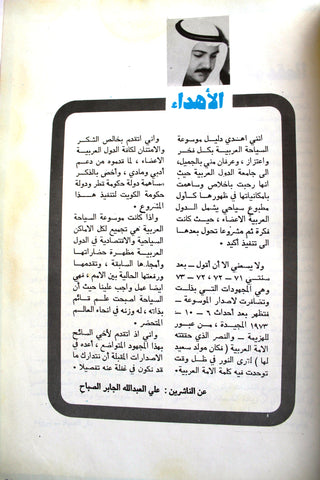 الأهداء
انني اهدي دليل موسوعة
السياحة العربية بكل فخر
واعتزاز ، وعرفان مني بالجميل،
الى جامعة الدول العربية حيث
انها رحبت باخلاص وساهمت
بامكانياتها في ظهورها كأول
مطبوع سياحي يشمل الدول
العربية الاعضاء ، حيث كانت
فكرة ثم مشروعا تحول بعدها
الى تنفيذ أكيد •
ولا يسعني الا أن أقول ــ بعد
سنتي ٧١ ــ ٧٢ ، ٧٢ ــ ٧٣
وهي المجهودات التي بذلت
وتضافرت لاصدار الموسوعة ــ
فتظهر بعد أحداث ٦ ــ ١٠ ــ
١٩٧٣ المجيدة ، من عبور
للهزيمة ــ والنصر الذي حققته
الامة العربية ( فكان مولد سعيد
لها ) أرى النور في ظل وقت
توحدت فيه كلمة الامة العربية•
واني اتقدم بخالص الشكر
والامتنان لكافة الدول العربية
الاعضاء ، لما قدموه من دعم
أدبي ومادي ، وأخص بالذكر
مساهمة دولة حكومة قطر ودولة
حكومة الكويت لتنفيذ هذا
المشروع •
واذا كانت موسوعة السياحة
العربية هي تجميع لكل الاماكن
السياحية والاقتصادية في الدول
العربية مظهرة حضاراتها
وأمجادها السابقة ، وتقدمها
ورفعتها الحالية بين الامم ، فهي
ايضا عمل واجب علينا حيث أن
السياحة اصبحت علم قائم
بذاته ، له وزنه في انحاء العالم
المتحضر •
واني اذ اتقدم لأخي السائح
بهذا المجهود المتواضع ، أعده في
الاصدارات المقبلة أن نتدارك ما
قد نكون في غفلة عنه تفصيلا •
عن الناشرين : علي العبدالله الجابر الصباح